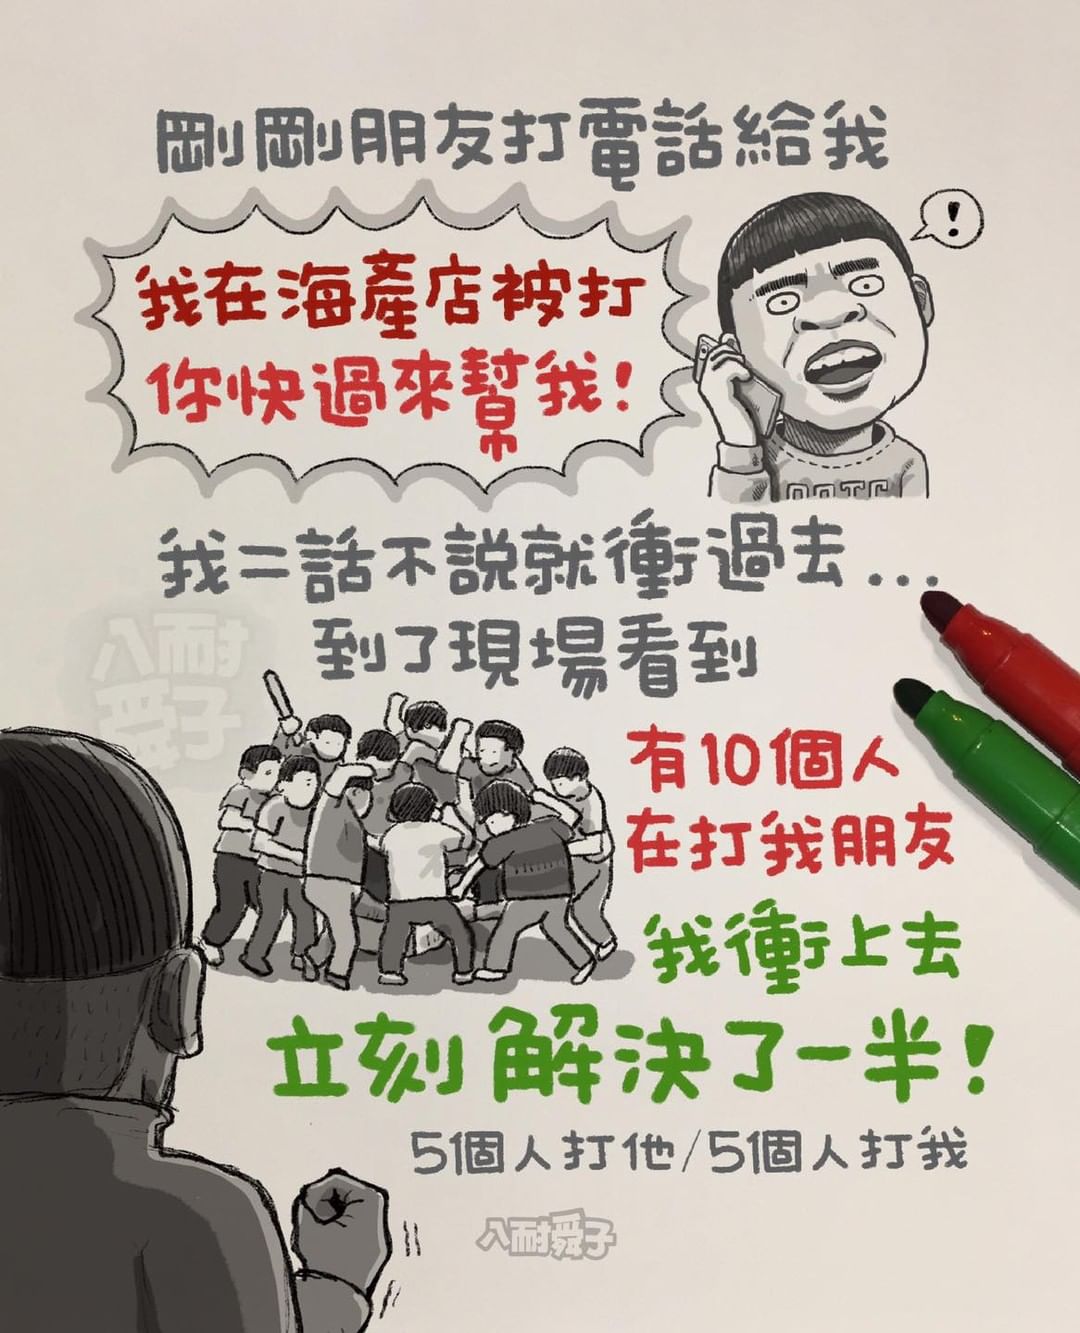 剛剛朋友打電話給我
!
我在海產店被打
你快過來幫我!
我二話不說就衝過去...
到了現場看到
八耐
舜子
有10個人
在打我朋友
我衝上去
立刻解決了一半!
5個人打他/5個人打我
八耐舜子